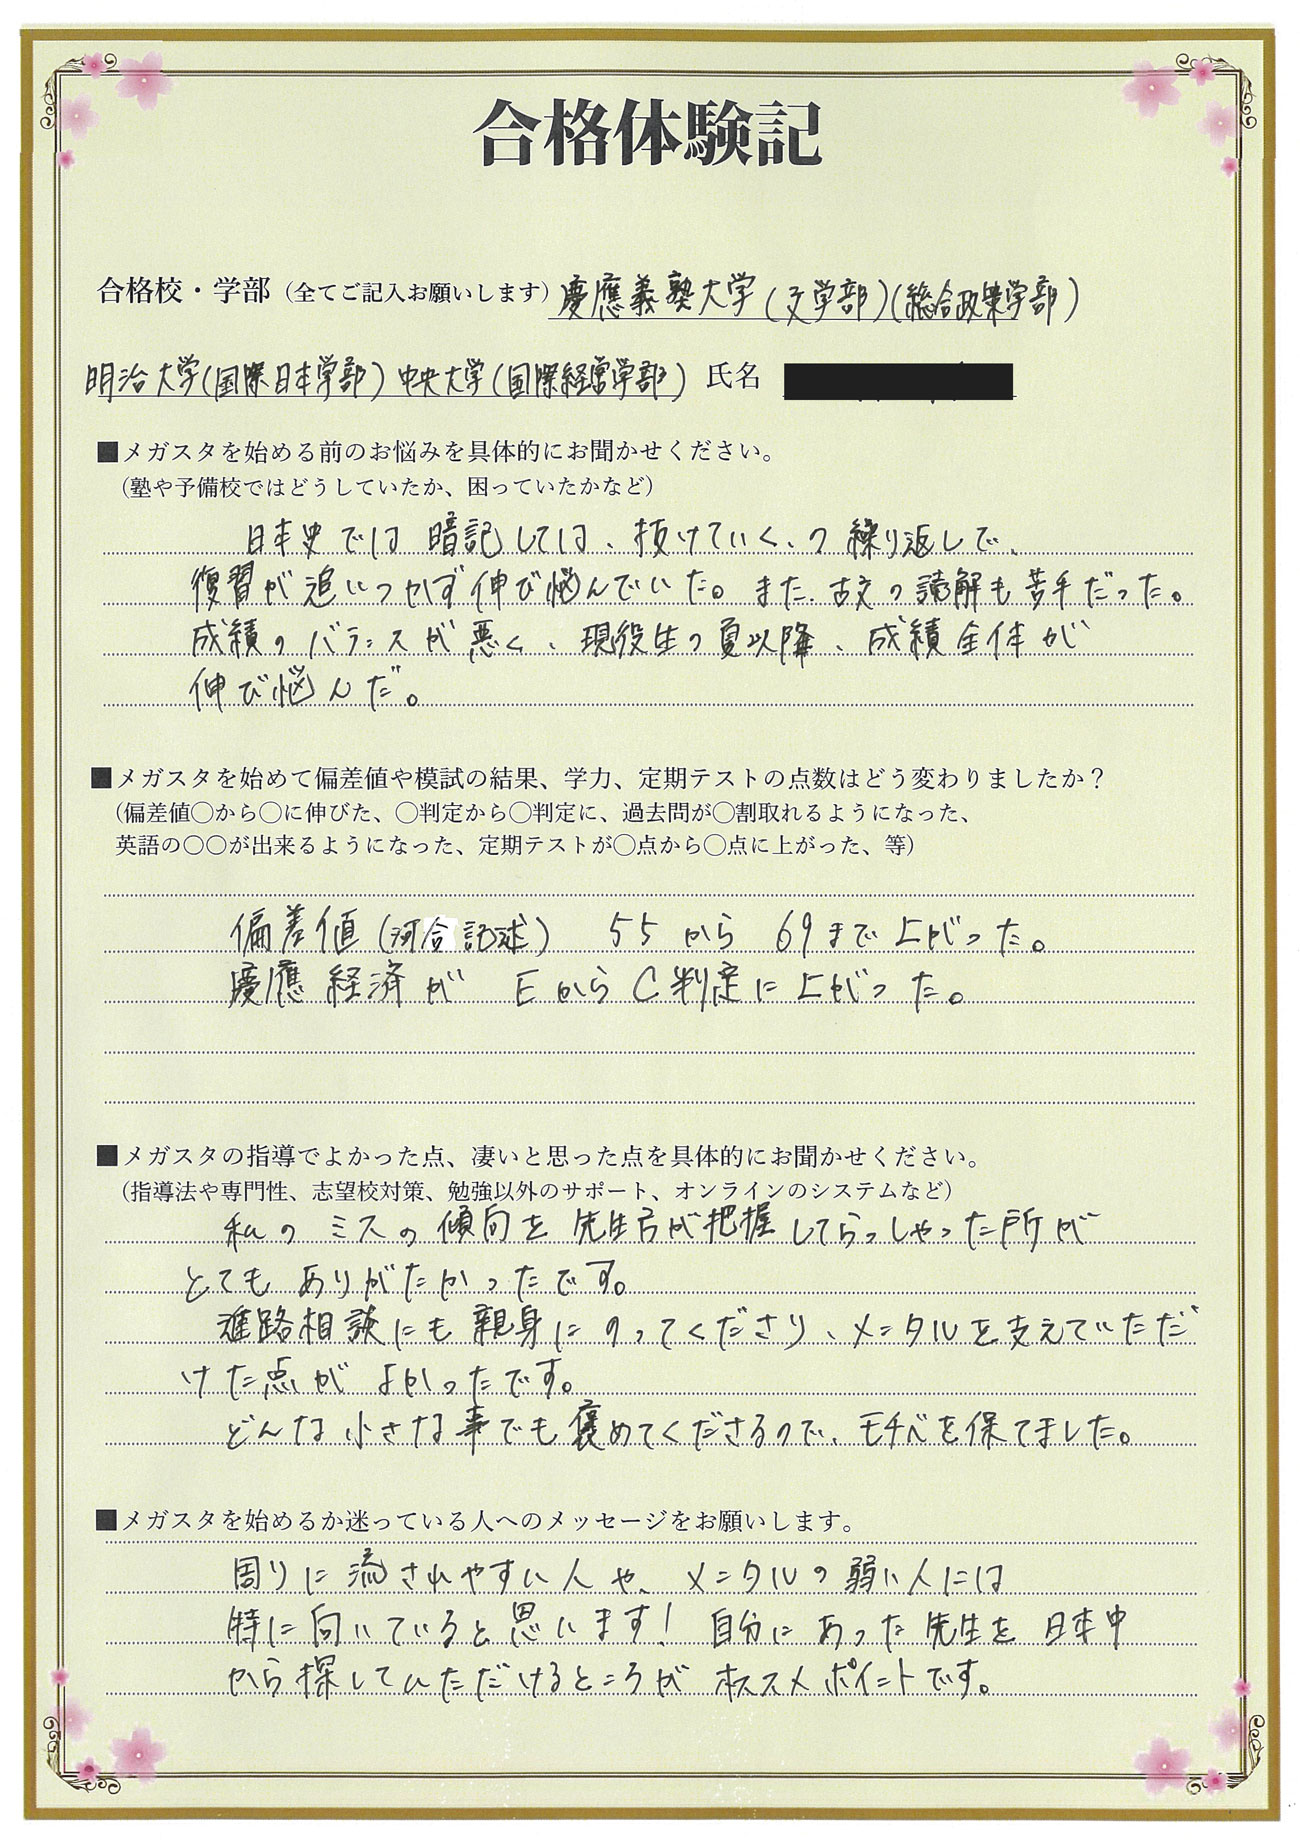 合格体験記
合格校・学部（全てご記入お願いします）慶應義塾大学(文学部)(総合政策学部)
明治大学(国際日本学部) 中央大学(国際経営学部) 氏名
■メガスタを始める前のお悩みを具体的にお聞かせください。
（塾や予備校ではどうしていたか、困っていたかなど）
日本史では暗記しては、抜けていく、の繰り返しで、
復習が追いつかず伸び悩んでいた。また、古文の読解も苦手だった。
成績のバランスが悪く、現役生の夏以降、成績全体が
伸び悩んだ。
■メガスタを始めて偏差値や模試の結果、学力、定期テストの点数はどう変わりましたか？
（偏差値〇から〇に伸びた、〇判定から〇判定に、過去問が〇割取れるようになった、
英語の〇〇が出来るようになった、定期テストが〇点から〇点に上がった、等）
偏差値(河合記述) 55から 69まで上がった。
慶應経済が EからC判定に上がった。
■メガスタの指導でよかった点、凄いと思った点を具体的にお聞かせください。
（指導法や専門性、志望校対策、勉強以外のサポート、オンラインのシステムなど）
私のミスの傾向を先生方が把握してらっしゃった所が
とてもありがたかったです。
進路相談にも親身にのってくださり、メンタルを支えていただ
けた点がよかったです。
どんな小さな事でも褒めてくださるので、モチベを保てました。
■メガスタを始めるか迷っている人へのメッセージをお願いします。
周りに流されやすい人や、メンタルの弱い人には
特に向いていると思います！ 自分にあった先生を日本中
から探していただけるところがオススメポイントです。